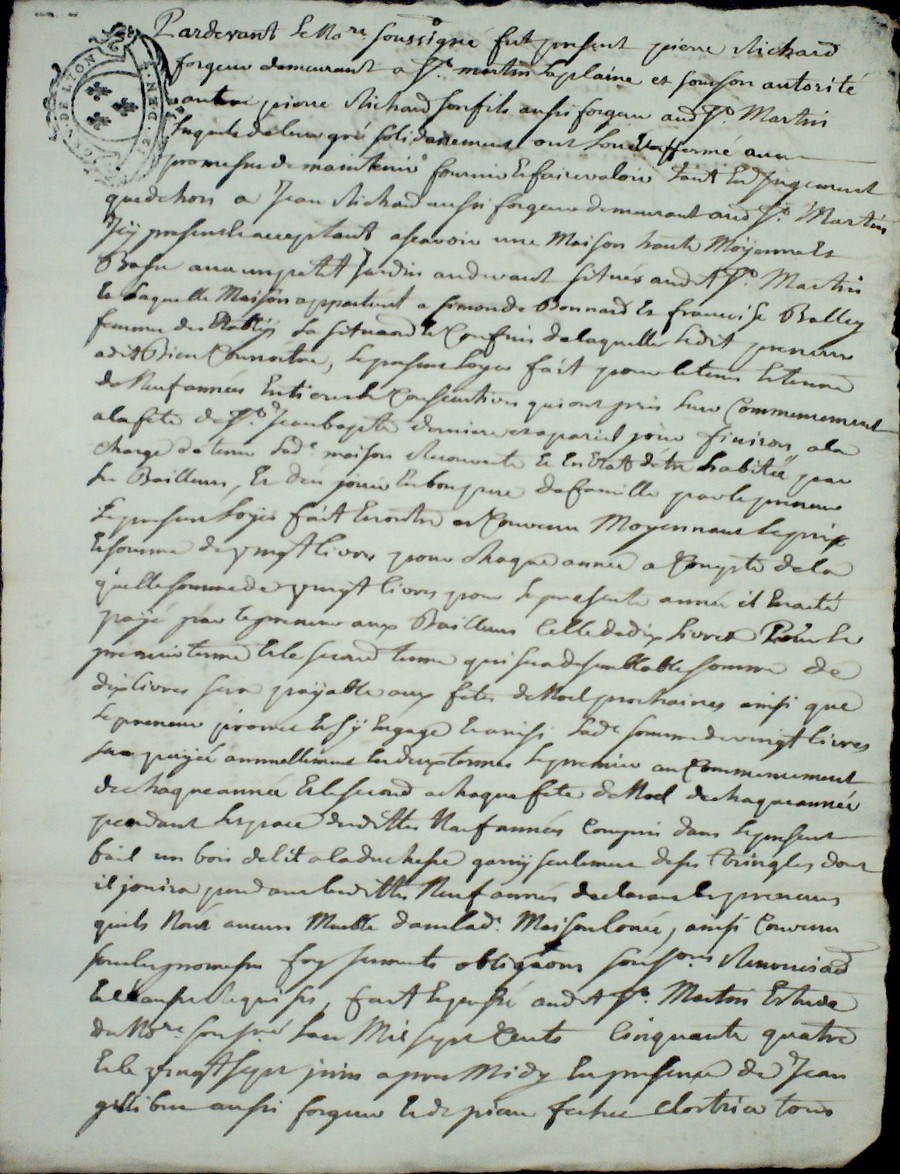 GEN. DE LYON
Pardevant le No.re soussigné fut present pierre Richard
forgeur demeurant a S.t martin la plaine et sous son autorité
autre pierre Richard son fils aussi forgeur aud S.t Martin
lequels de leur gré solidairement ont loué et affermé avec
promesse de maintenir fournir et faire valoir tant en Jugement
que dehors a Jean Richard aussi forgeur demeurant aud S.t Martin
Icy present et acceptant ascavoir une Maison haute Moÿenne et
Basse avec un petit Jardin au devant située audit S.t Martin
et laquelle Maison appartient a Simonde Bonnard et francoise Balley
femmes des Establis la situaõn et Confins de laquelle ledit preneur
a dit Bien Connoitre, le present loyer fait pour le tems et terme
de Neuf années Entieres et Consecutives qui ont pris leur Commencement
a la fete de S.t Jean baptiste derniere et a pareil jour finiron, a la
charge de tenir lad.e maison Recouverte et en Etat d'etre habitée par
les Bailleurs, Et d'en jouir En bon pere de famille par le preneur
le present loyer fait En outre et Convenu Moyennant le prix
et somme de vingt livres pour chaque année a Compte de la
quelle somme de vingt livres pour le presente année il En a été
payé par le preneur aux Bailleurs Celle de dix livres Pour le
premier terme Et le second terme qui sera de semblable somme de
dix livres sera payable aux fetes de Noel prochaines ainsi que
le preneur promet et s'ÿ Engage Et ainsi lad.e somme de vingt livres
sera payée annuellement En deux termes le premier au Commencement
de chaque année Et le second a chaque fete de Noel de chaque année
pendant l'espace desdittes Neuf années Compris dans le present
bail un bois de lit a la duchesse garnÿ seulement de ses tringles, dont
il jouira pendant lesdittes Neuf années declarant le preneur
qu'ils N'ont aucun Meuble dans lad.e Maison louée, ainsi Convenu
sous les promesses foy serments obligaõns soub.ons Renonciaõ
Et Clauses Requises, fait et passé audit S.t Martin Etude
du No.re sous.né l'an Mil sept Cents Cinquante quatre
Et le vingt sept juin apres Midy En presence de Jean
aussi forgeur Et de tous